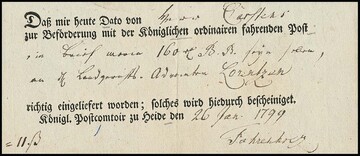 Daß mir heute Dato von Herr Carstens
zur Beförderung mit der Königlichen ordinairen fahrenden Post
ein brief worin 160 seyn sollen,
an Landgerichts-Advocaten Lorentzen
richtig eingeliefert worden; solches wird hiedurch bescheiniget.
Königl. Postcomtoir zu Heide den 26 Jan 1799
11 ß